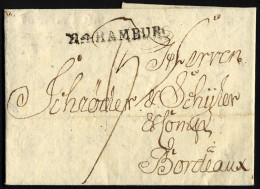 HAMBURG
Herren
Schröder & Schÿler
& Comp.
à
Bordeaux